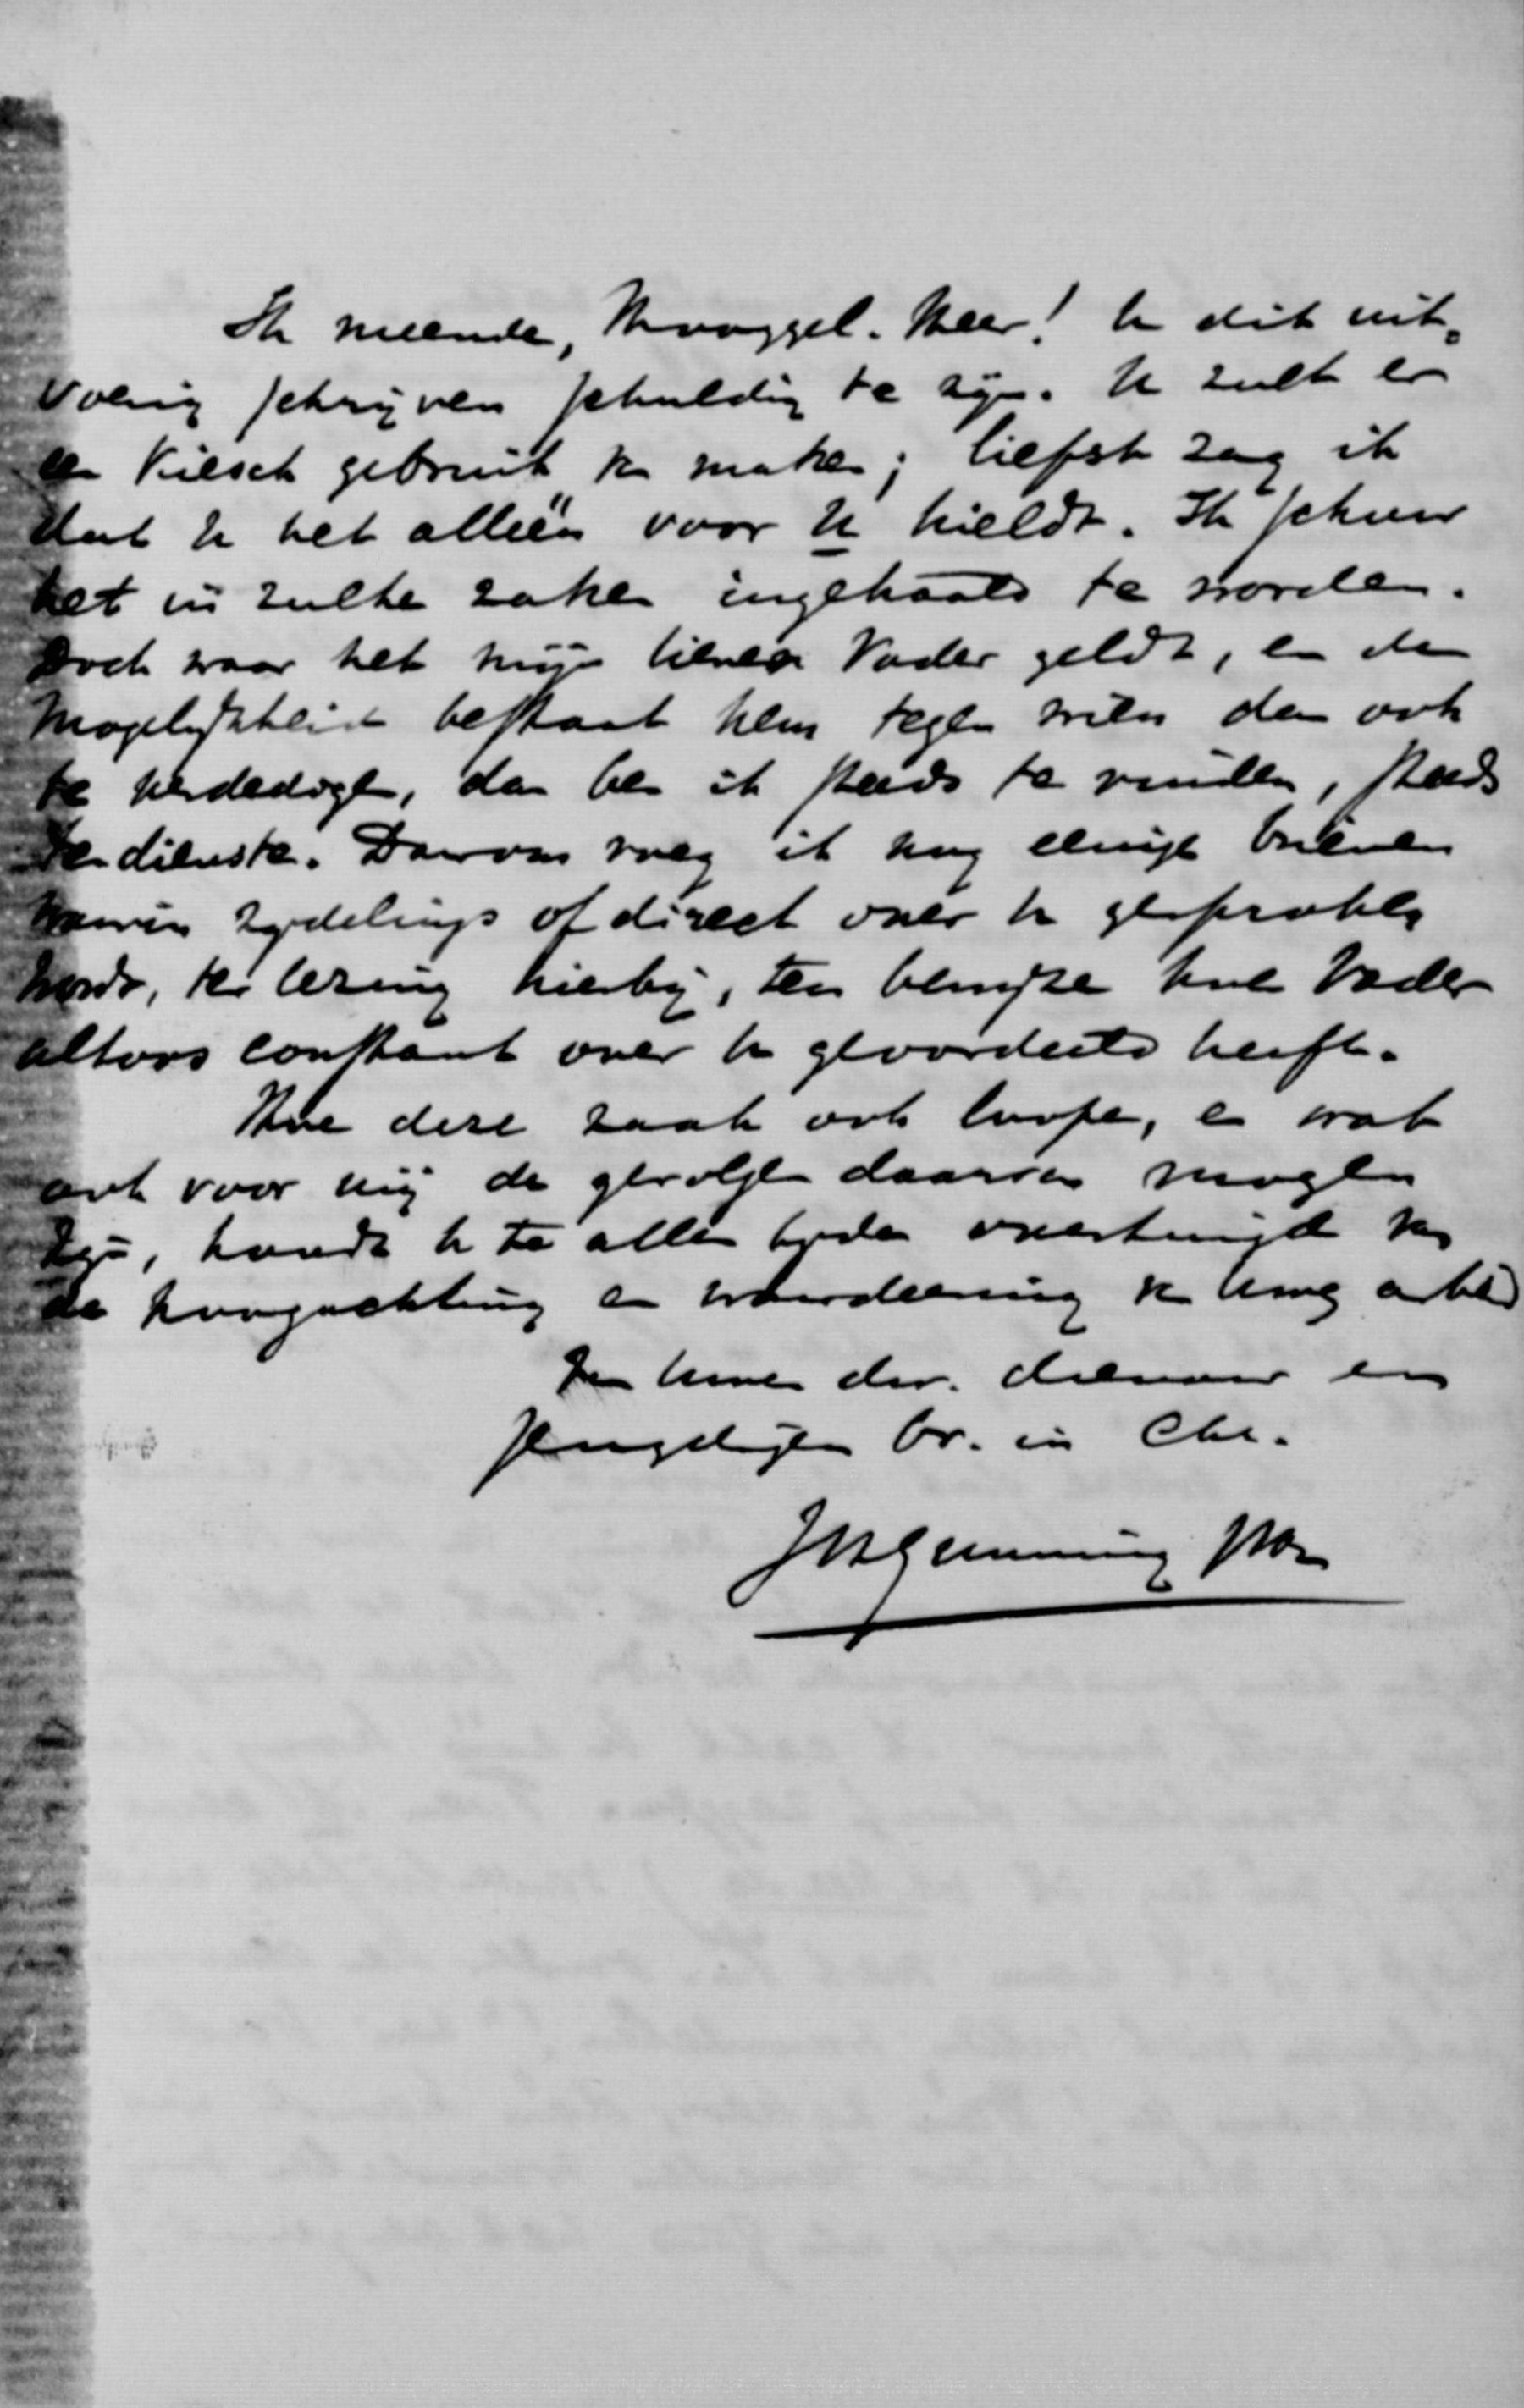 Ik meende, Hooggel. Heer! U dit uit-
voerig schrijven schuldig te zijn. U zult er
een kiesch gebruik v. maken; liefst zag ik
dat U het alléén voor U hieldt. Ik schuw
het in zulke zaken ingehaald te worden.
Doch waar het mijn lieven Vader geldt, en de
mogelijkheid bestaat hem tegen wien dan ook
te verdedigen, dan ben ik steeds te vinden, steeds
ten dienste. Daarom voeg ik nog eenige brieven
waarin zijdelings of direct over U gesproken
wordt, ter lezing hierbij, ten bewijze hoe Vader
altoos constant over U geoordeeld heeft.
Hoe deze zaak ook loope, en wat
ook voor mij de gevolgen daarvan mogen
zijn, houdt U te allen tijde overtuigd v.
de hoogachting en waardeering v. Uwe arbeid
Uwe dw. dienaar en
br. in Chr.
JHGunning JHz